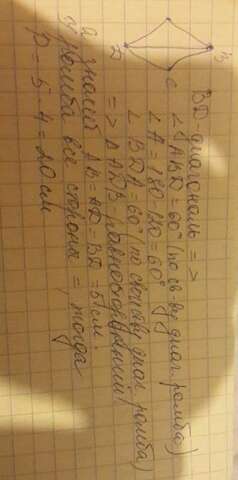 B
D
C
BD диагональ =>
∠ABD=60° (по св-ву диаг. ромба)
∠A=180-120=60°
∠BDA=60° (по свойству диаг. ромба)
=> ΔADB-равносторонний (
а значит AB=AD=BD=5см.
у ромба все стороны =, тогда
P=5·4=20см